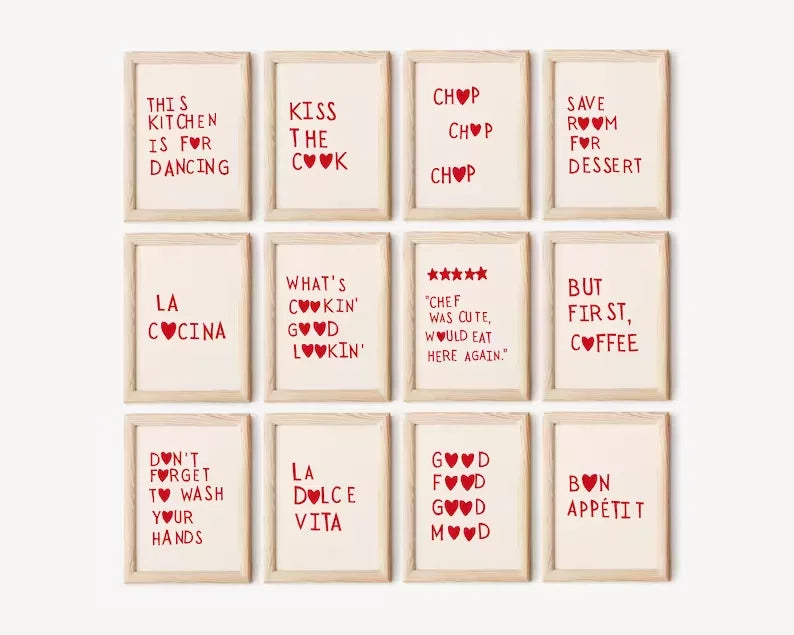 THIS
KITCHEN
IS F♥R
DANCING
KISS
THE
C♥♥K
CH♥P
CH♥P
CH♥P
SAVE
R♥♥M
F♥R
DESSERT
LA
C♥CINA
WHAT'S
C♥♥KIN'
G♥♥D
L♥♥KIN'
★★★★★
"CHEF
WAS CUTE,
W♥ULD EAT
HERE AGAIN."
BUT
FIRST,
C♥FFEE
D♥N'T
F♥RGET
T♥ WASH
Y♥UR
HANDS
LA
D♥LCE
VITA
G♥♥D
F♥♥D
G♥♥D
M♥♥D
B♥N
APPÉTIT